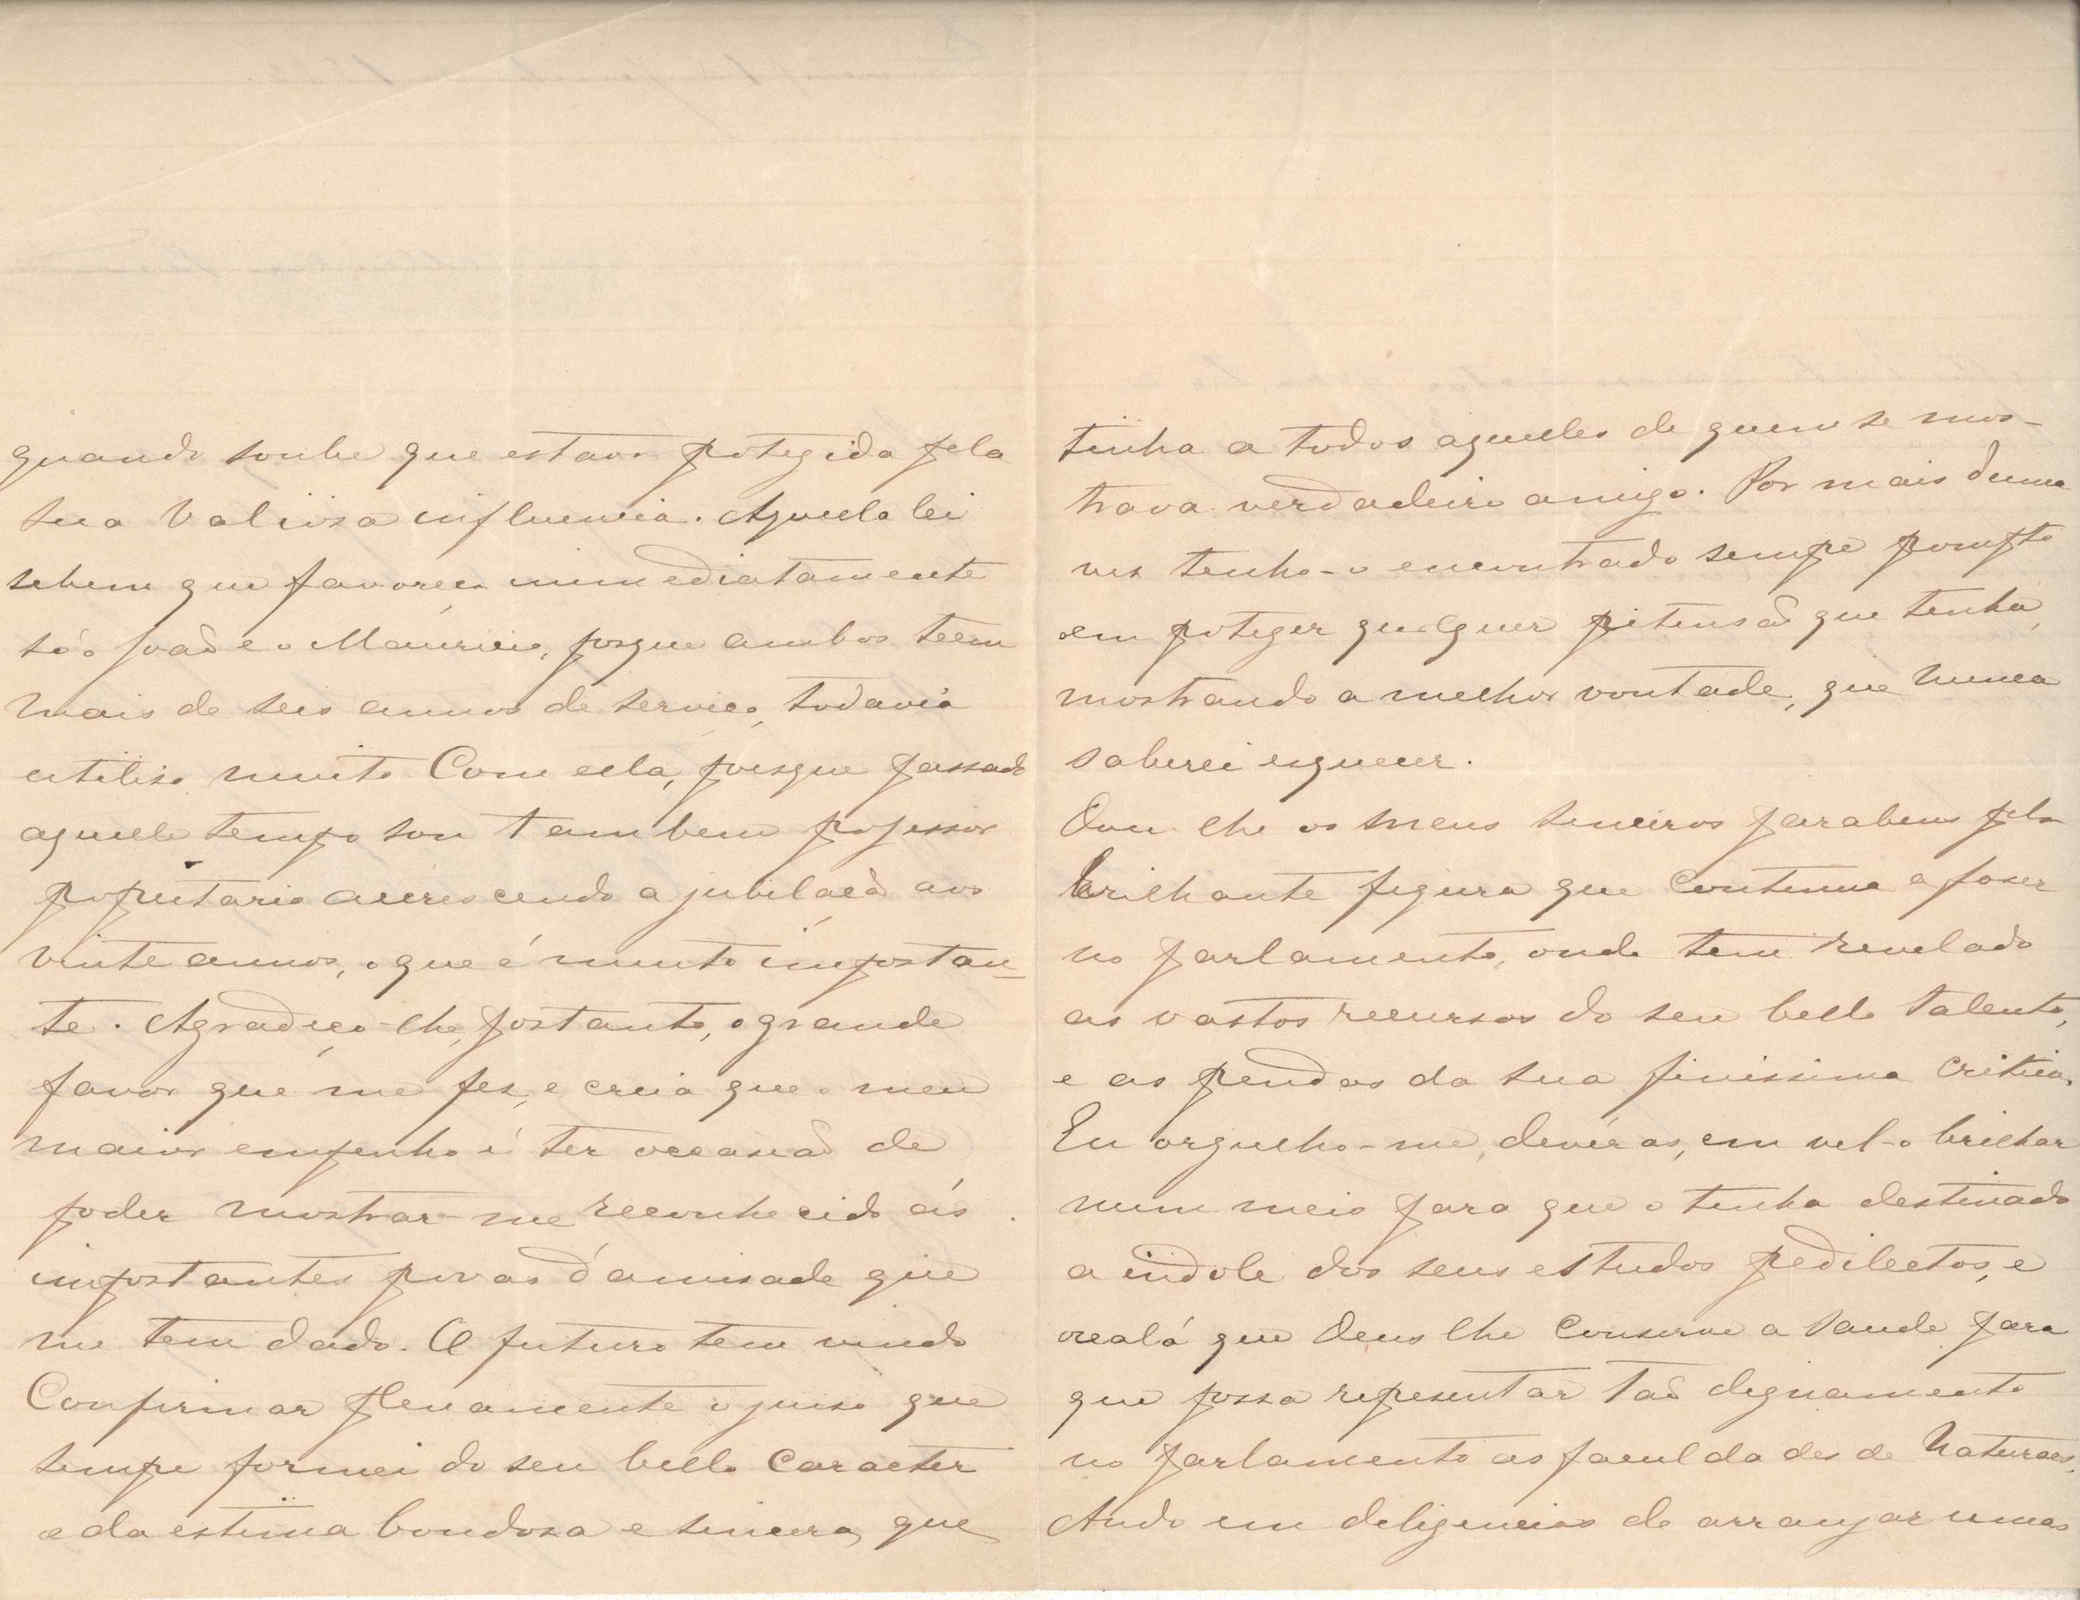 quando soube que estava protegida pela
sua valiosa influencia. Aquella lei
se bem que favoreça immediatamente
só o João e o Mauricio, porque ambos teem
mais de seis annos de serviço, todavia
utiliso muito com ella, poisque passado
aquelle tempo sou tambem professor
proprietario accrescendo a jubilação aos
vinte annos, o que é muito importan-
te. Agradeço-lhe, portanto, o grande
favor que me fez, e creia que o meu
maior empenho é ter occasião de
poder mostrar-me reconhecido ás
importantes provas d'amisade que
me tem dado. O futuro tem vindo
confirmar plenamente o juiso que
sempre formei do seu bello caracter
e da estima bondosa e sincera, que
tinha a todos aquelles de quem se mos-
trava verdadeiro amigo. Por mais duma
vez tenho-o encontrado sempre prompto
em proteger qualquer pretensão que tenha,
mostrando a melhor vontade, que nunca
saberei esquecer.
Dou lhe os meus sinceros parabens pela
brilhante figura que continua a fazer
no parlamento, onde tem revelado
os vastos recursos do seu bello talento,
e as prendas da sua finissima critica.
Eu orgulho-me, devéras, em vel-o brilhar
num meio para que o tinha destinado
a indole dos seus estudos predilectos, e
oxalá que Deus lhe conserve a saude para
que possa representar tão dignamente
no parlamento as faculdades de Naturaes.
Ando em deligencias de arranjar umas